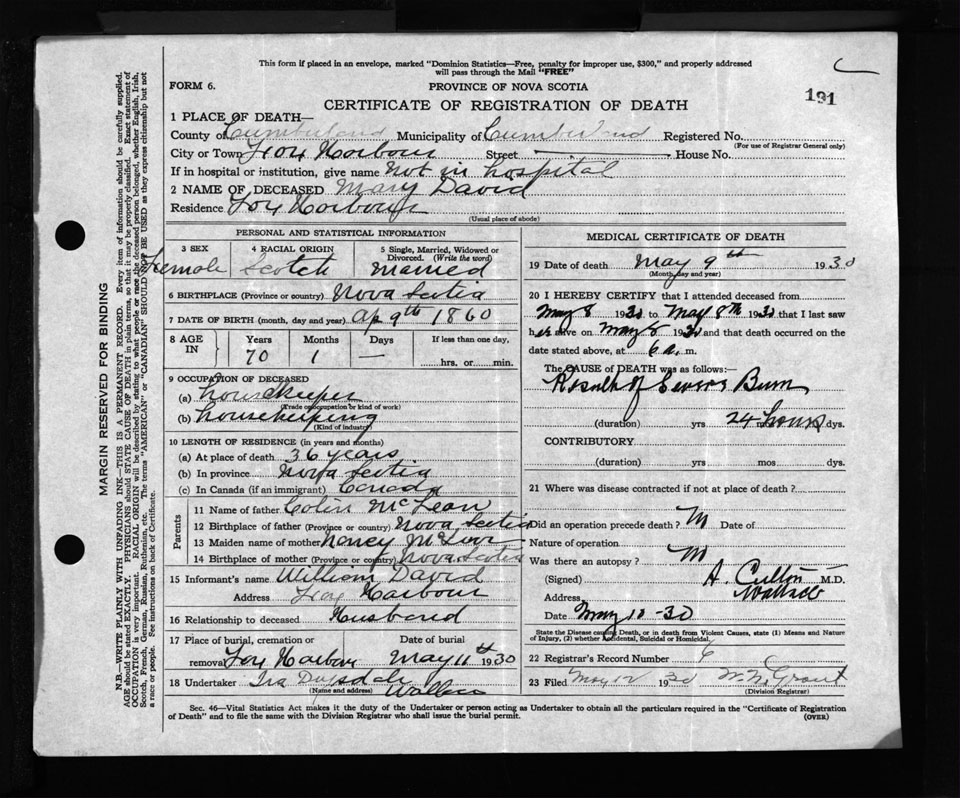 This form if placed in an envelope, marked "Dominion Statistics—Free, penalty for improper use, $300," and properly addressed
will pass through the Mail "FREE"
FORM 6.
PROVINCE OF NOVA SCOTIA
191
CERTIFICATE OF REGISTRATION OF DEATH
1 PLACE OF DEATH—
County of Cumberland Municipality of Cumberland Registered No.
(For use of Registrar General only)
City or Town Fox Harbour Street House No.
If in hospital or institution, give name Not in hospital
2 NAME OF DECEASED Mary David
Residence Fox Harbour
(Usual place of abode)
PERSONAL AND STATISTICAL INFORMATION
3 SEX 4 RACIAL ORIGIN 5 Single, Married, Widowed or Divorced. (Write the word)
Female Scotch Married
6 BIRTHPLACE (Province or country) Nova Scotia
7 DATE OF BIRTH (month, day and year) Ap 9th 1860
8 AGE IN Years Months Days If less than one day,
70 1 — hrs. or min.
9 OCCUPATION OF DECEASED
(a) housekeeper
(Trade or occupation or kind of work)
(b) housekeeping
(Kind of industry)
10 LENGTH OF RESIDENCE (in years and months)
(a) At place of death 36 years
(b) In province Nova Scotia
(c) In Canada (if an immigrant) Canada
Parents
11 Name of father Colin McLean
12 Birthplace of father (Province or country) Nova Scotia
13 Maiden name of mother Nancy
14 Birthplace of mother (Province or country) Nova Scotia
15 Informant's name William David
Address Fox Harbour
16 Relationship to deceased Husband
17 Place of burial, cremation or removal Fox Harbour Date of burial May 11th 1930
18 Undertaker Ira Wallace
(Name and address)
MEDICAL CERTIFICATE OF DEATH
19 Date of death May 9th 1930
(Month, day and year)
20 I HEREBY CERTIFY that I attended deceased from
May 8 1930 to May 8th 1930 that I last saw
her alive on May 8 1930 and that death occurred on
date stated above, at 6 a. m.
The CAUSE OF DEATH was as follows:—
Result of Severe Burn
(duration) yrs 24 hours dys.
CONTRIBUTORY
(duration) yrs mos dys.
21 Where was disease contracted if not at place of death?
Did an operation precede death? Date of
Nature of operation
Was there an autopsy?
(Signed) A. M.D.
Address Wallace
Date May 10 -30
State the Disease causing Death, or in death from Violent Causes, state (1) Means and Nature
of Injury, (2) whether Accidental, Suicidal or Homicidal.
22 Registrar's Record Number 6
23 Filed May 12 1930 Grant
(Division Registrar)
Sec. 46—Vital Statistics Act makes it the duty of the Undertaker or person acting as Undertaker to obtain all the particulars required in the "Certificate of Registration
of Death" and to file the same with the Division Registrar who shall issue the burial permit.
(OVER)
MARGIN RESERVED FOR BINDING
N.B.—WRITE PLAINLY WITH UNFADING INK—THIS IS A PERMANENT RECORD. Every item of information should be carefully supplied.
AGE should be stated EXACTLY. PHYSICIANS should STATE CAUSE OF DEATH in plain terms, so that it may be properly classified. Exact statement of
OCCUPATION is very important. RACIAL ORIGIN will be described by stating to what people or race the deceased person belonged, whether English, Irish,
Scotch, French, German, Russian, Ruthenian, etc. The terms "AMERICAN" or "CANADIAN" SHOULD NOT BE USED as they express citizenship but not
a race or people. See instructions on back of Certificate.